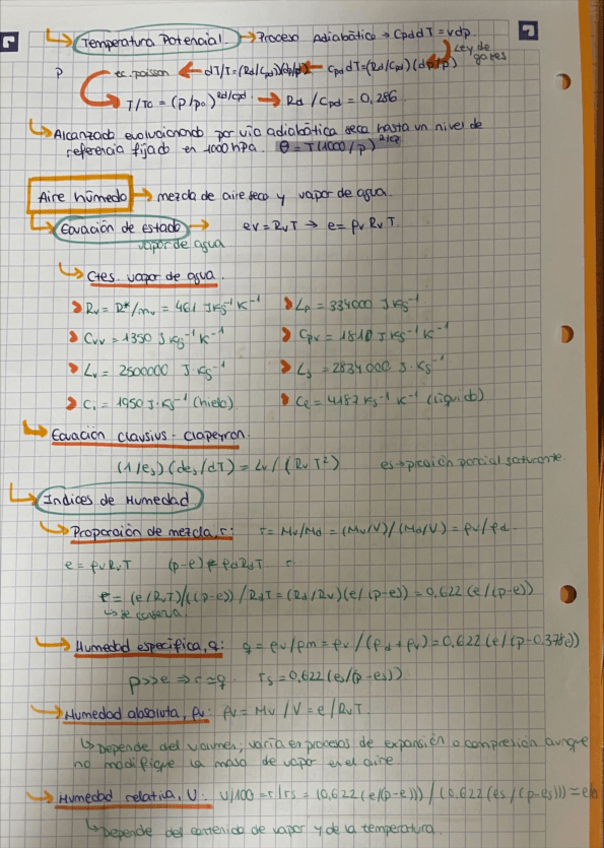 Temperatura Potencial → Proceso Adiabático → CpddT = vdp
Ley de gases
P ec. poisson ← dT/T=(Rd/Cpd)(dp/p) ← CpddT=(Rd/Cpd)(dp/p)
T/To = (p/po)^Rd/cpd → Rd/Cpd = 0,286
Alcanzado evolucionando por vía adiabática seca hasta un nivel de
referencia fijado en 1000hPa. θ=T(1000/p)
Aire húmedo → mezcla de aire seco y vapor de agua.
Ecuación de estado → ev=RvT → e=ρvRvT.
vapor de agua
Ctes. vapor de agua.
Rv = R*/mv = 461 JKg⁻¹K⁻¹ Lp = 334000 JKg⁻¹
Cvv = 1350 JKg⁻¹K⁻¹ Cpv = 1810 JKg⁻¹K⁻¹
Lv = 2500000 J·Kg⁻¹ Ls = 2834000 J·Kg⁻¹
Ci = 1950 J·Kg⁻¹ (hielo) Ce = 4187 Kg⁻¹K⁻¹ (líquido)
Ecuación Clausius-Clapeyron.
(1/es)(des/dT)=Lv/(RvT²) es→presión parcial saturante.
Indices de Humedad
Proporción de mezcla, r: r=Mv/Md=(Mv/V)/(Md/V)=ρv/ρd.
e=ρvRvT (p-e) = ρdRdT
r=(e/RvT)/((p-e))/RdT=(Rd/Rv)(e/(p-e))=0,622(e/(p-e))
Humedad específica, q: q=ρv/ρm=ρv/(ρd+ρv)=0,622(e/(p-0,378e))
p>>e ⇒ r≃q. rs=0,622(es/(p-es))
Humedad absoluta, ρv: ρv=Mv/V=e/RvT.
Depende del volumen, varía en procesos de expansión o compresión aunque
no modifique la masa de vapor en el aire
Humedad relativa, U: U/100=r/rs=(0,622(e/(p-e)))/(0,622(es/(p-es)))=e/e
Depende del contenido de vapor y de la temperatura.